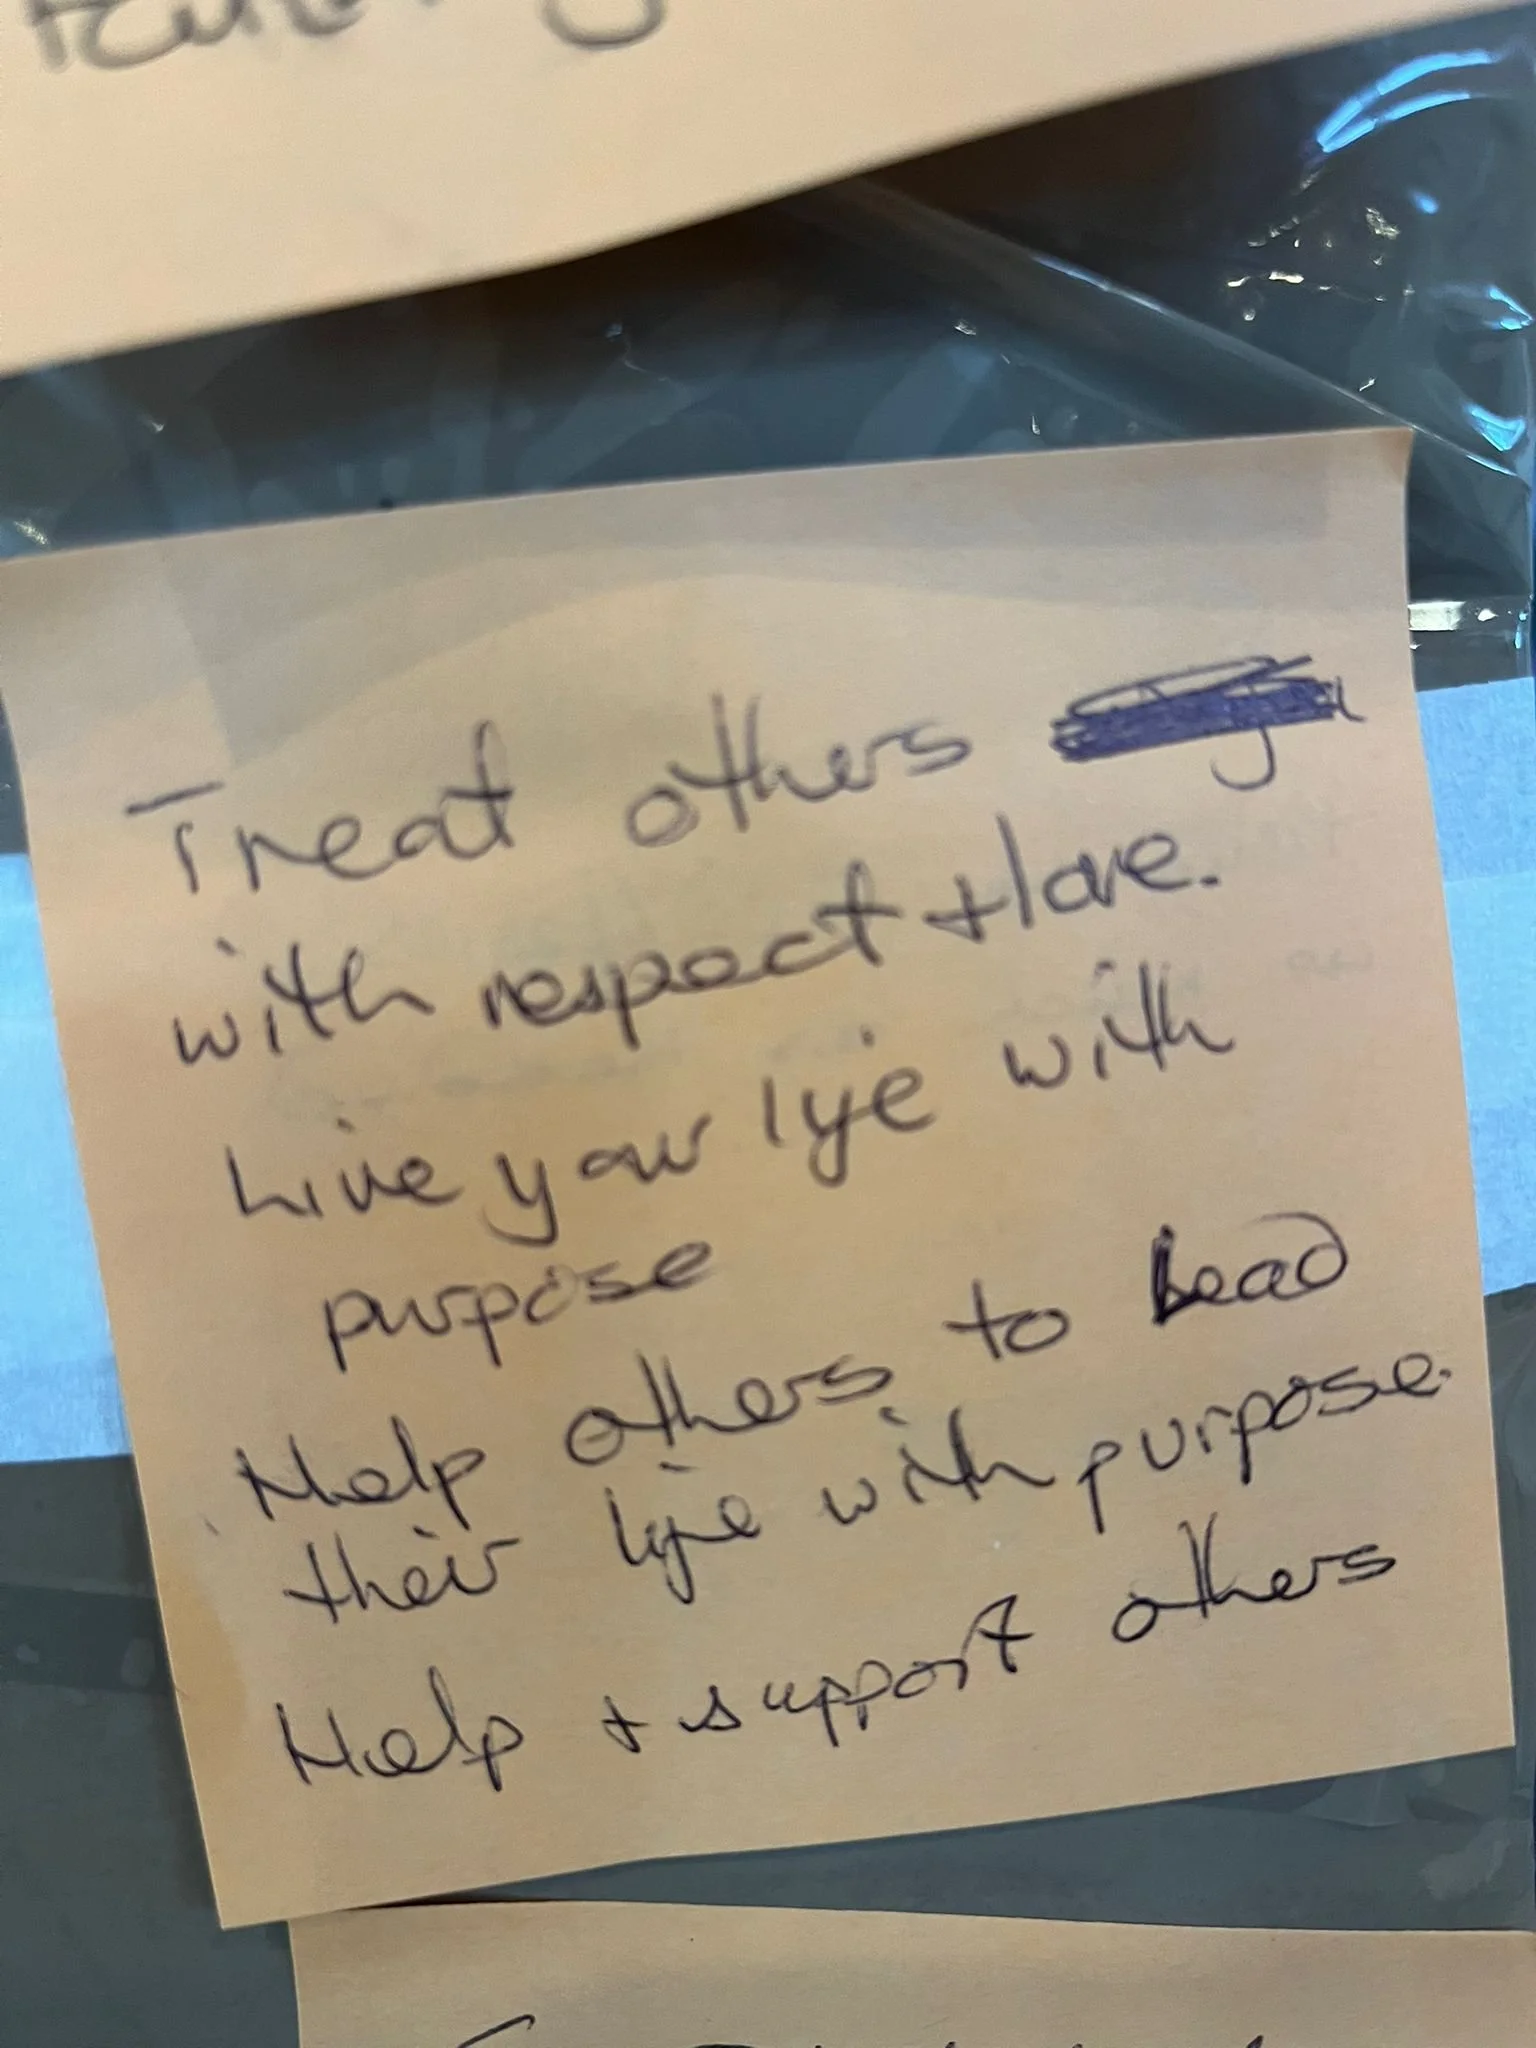 Treat others
with respect + love.
Live your life with
purpose
Help others to Lead
their life with purpose.
Help + support others